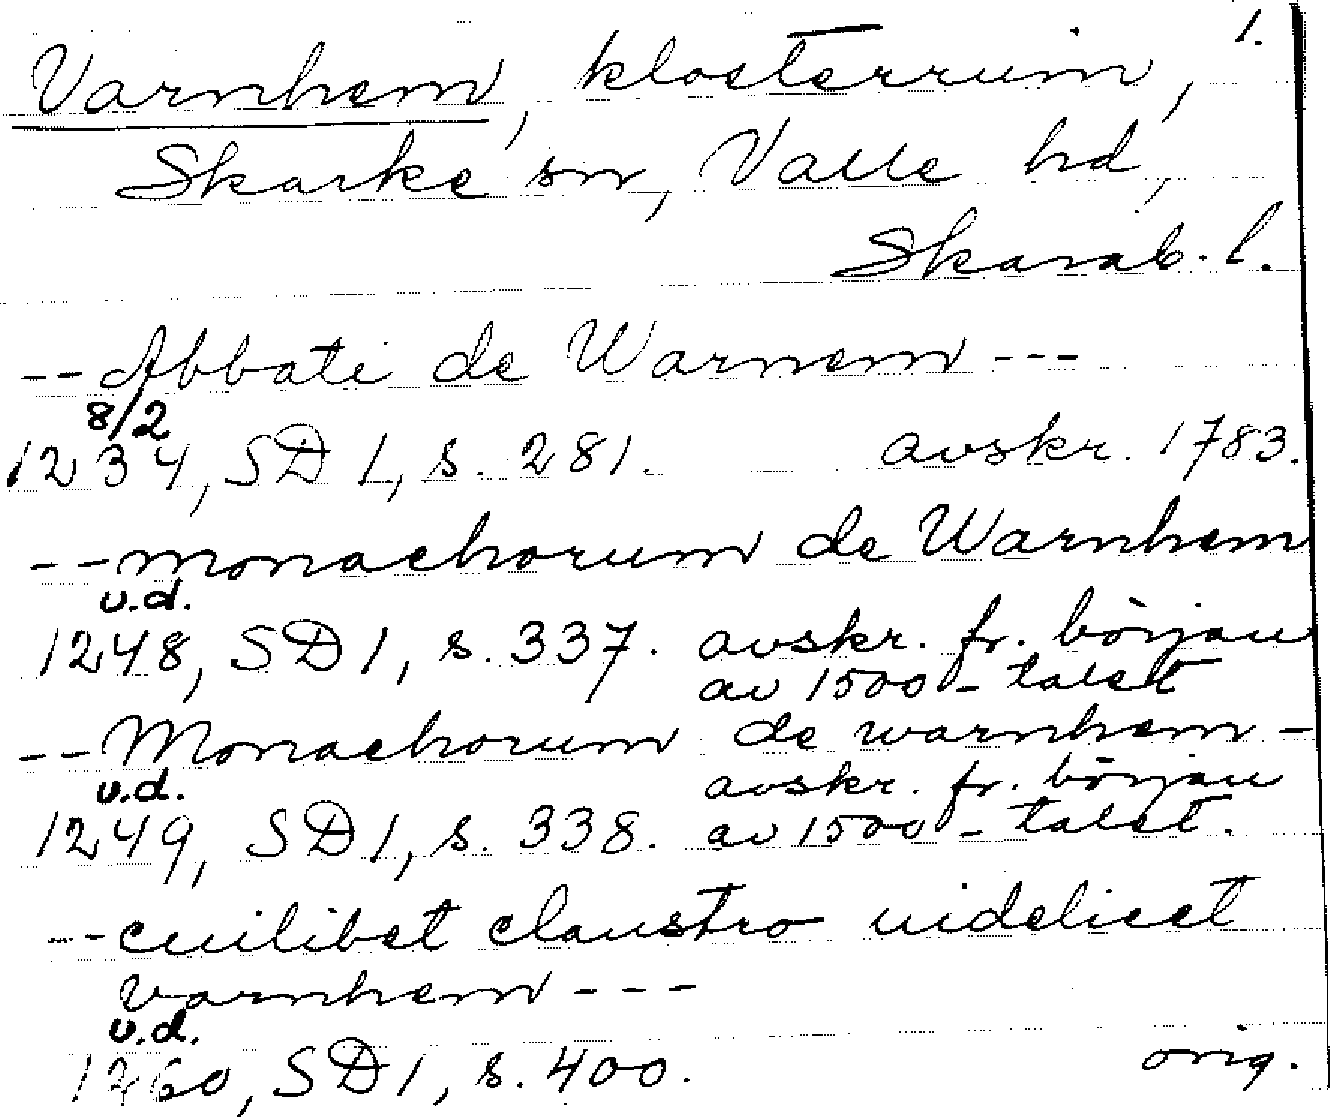 1.
Varnhem, klosterruin,
Skarke sn, Valle hd,
Skarab. l.
-- Abbati de Warnem ---
8/2
1234, SD 1, s. 281. avskr. 1783.
-- monachorum de Warnhem
u.d.
1248, SD 1, s. 337. avskr. fr. början
av 1500-talet
-- Monachorum de warnhem -
u.d. avskr. fr. början
1249, SD 1, s. 338. av 1500-talet.
-- cuilibet claustro uidelicet
varnhem ---
u.d.
1260, SD 1, s. 400. orig.